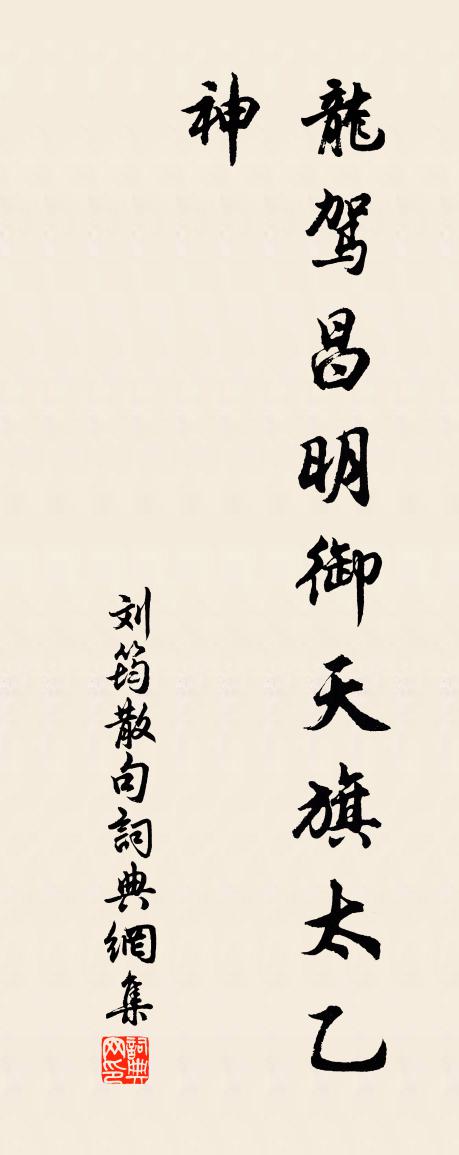 龍駕昌明御天旗太乙
神
刘筠散句詞典網集
詞典
网印